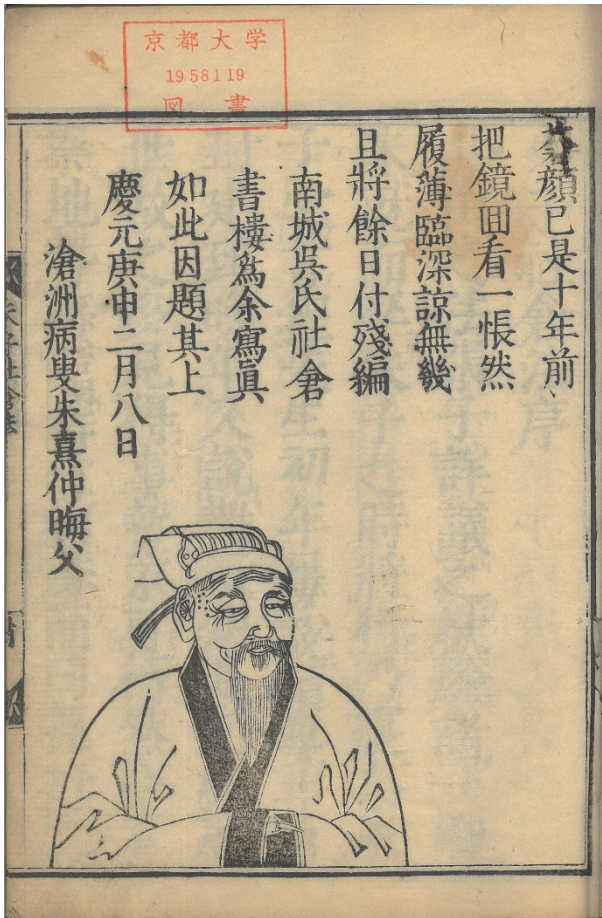 京都大学
1958119
図書
蒼顔已是十年前
把鏡回看一悵然
履薄臨深諒無幾
且將餘日付殘編
南城吳氏社倉
書樓爲余寫眞
如此因題其上
慶元庚申二月八日
滄洲病叟朱熹仲晦父
朱子社倉法